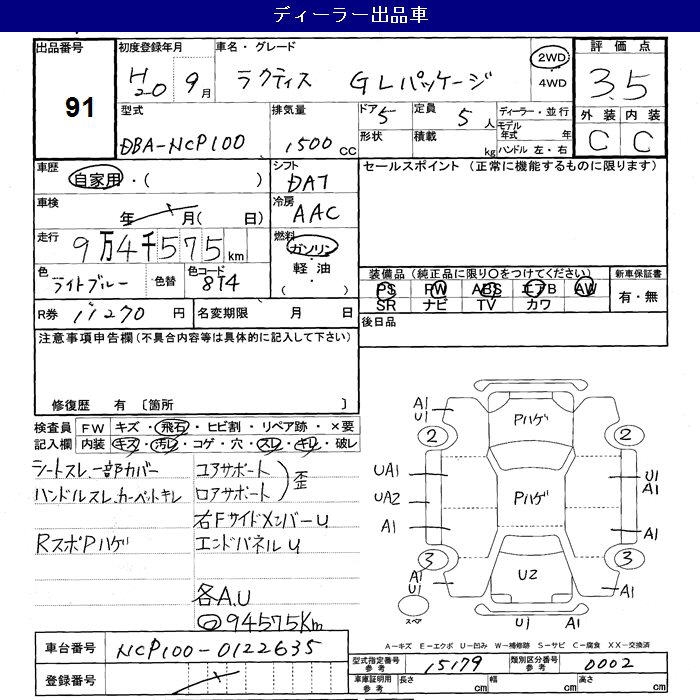 ディーラー出品車
出品番号 初度登録年月 車名・グレード 2WD 評価点
91 H20 9月 ラクティス GLパッケージ ・ 4WD 3.5
型式 排気量 ドア 5 定員 5人 ディーラー・並行 外装 内装
DBA-NCP100 1500cc 形状 積載 kg モデル年式 年 C C
ハンドル 左・右
車歴 自家用・( ) シフト DAT セールスポイント (正常に機能するものに限ります)
車検 年 月( 日) 冷房 AAC
走行 9万4千575km 燃料 ガソリン・軽油・( )
色 ライトブルー 色替 色コード 8T4
装備品(純正品に限り○をつけてください) 新車保証書
PS PW ABS エアB AW 有・無
SR ナビ TV カワ
R券 11270円 名変期限 月 日 後日品
注意事項申告欄(不具合内容等は具体的に記入して下さい)
修復歴 有 〔箇所 〕
検査員 FW キズ・飛石・ヒビ割・リペア跡・×要
記入欄 内装 キズ・汚レ・コゲ・穴・スレ・キレ・破レ
シートスレ、一部カバー コアサポート
ハンドルスレ、カーペットキレ ロアサポート 歪
右FサイドメンバーU
RスポPハゲ エンドパネルU
各A.U
94575Km
A1
U1
Pハゲ
2 2
UA1 U1
A1
UA2 Pハゲ
A1 A1
3 3
A1
U1
U2
A1
スペア
U1 A1
A-キズ E-エクボ U-凹み W-補修跡 S-サビ C-腐食 XX-交換済
車台番号 NCP100-0122635
型式指定番号 参考 15179 類別区分番号 参考 0002
登録番号
車庫証明用 参考 長さ cm 幅 cm 高さ cm